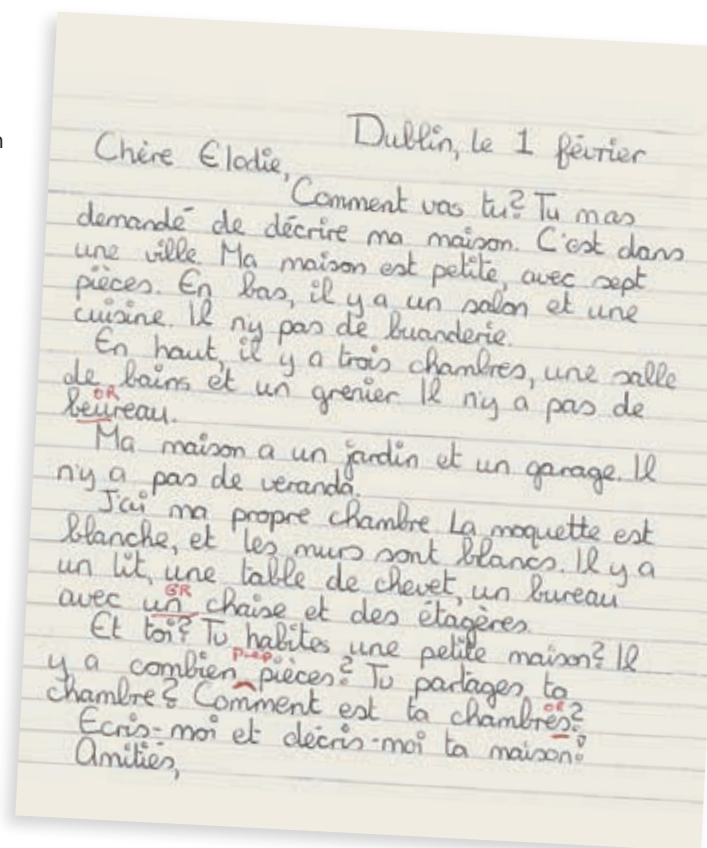 n
Dublin, le 1 février
Chère Elodie,
Comment vas tu? Tu mas
demandé de décrire ma maison. C'est dans
une ville. Ma maison est petite, avec sept
pièces. En bas, il y a un salon et une
cuisine. Il n'y pas de buanderie.
En haut, il y a trois chambres, une salle
de bains et un grenier. Il n'y a pas de
OR
beureau.
Ma maison a un jardin et un garage. Il
n'y a pas de veranda.
J'ai ma propre chambre. La moquette est
blanche, et les murs sont blancs. Il y a
un lit, une table de chevet, un bureau
GR
avec un chaise et des étagères.
Et toi? Tu habites une petite maison? Il
prep
y a combien pièces? Tu partages ta
OR
chambre? Comment est ta chambres?
Ecris-moi et décris-moi ta maison!
Amitiés,